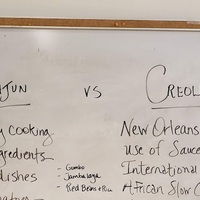 JUN VS CREOL
y cooking
gredients
dishes
- Gumbo
- Jambalaya
- Red Beans + Rice
New Orleans
use of Sauce
International
African Slow C